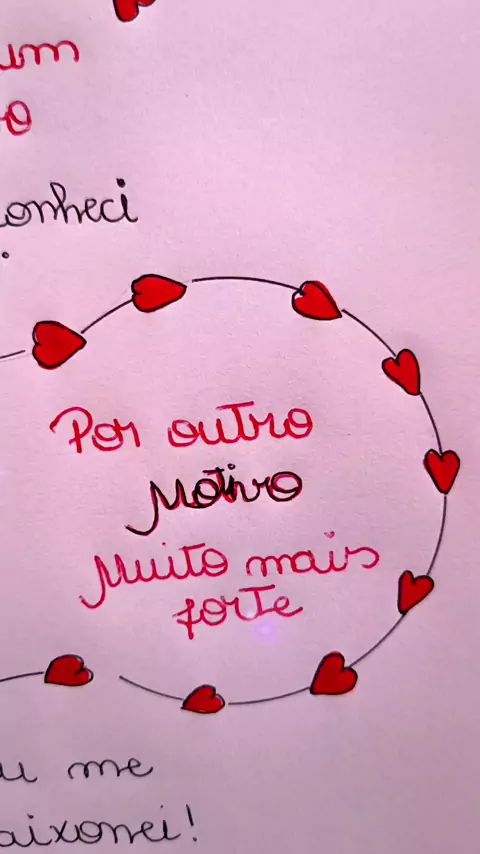 um
o
onheci
Por outro
Motivo
Muito mais
forte
u me
aixonei!